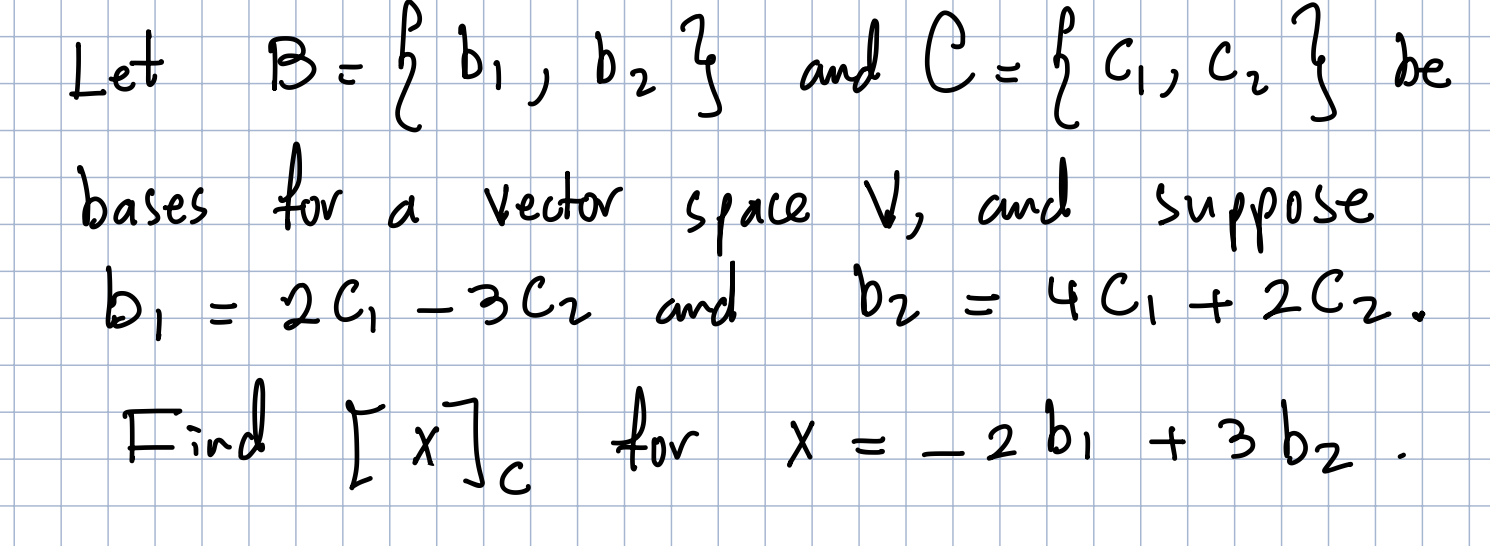 Let B = { b₁, b₂ } and C = { c₁, c₂ } be
bases for a vector space V, and suppose
b₁ = 2c₁ - 3c₂ and b₂ = 4c₁ + 2c₂.
Find [x]_C for x = -2b₁ + 3b₂.